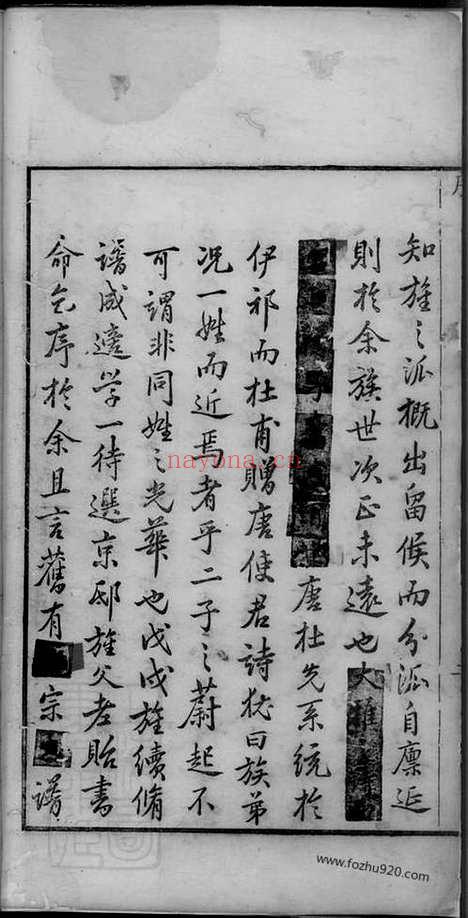 知旌之派概出留侯而分派自廪延
則於余族世次正未遠也
唐杜先系統於
伊祁而杜甫贈唐使君詩猶曰族弟
况一姓而近焉者乎二子之蔚起不
可謂非同姓之光華也戊戌旌續脩
譜成遠學一待選京邸旌父老貽書
命乞序於余且言舊有宗譜
nayona.cn
www.fozhu920.com